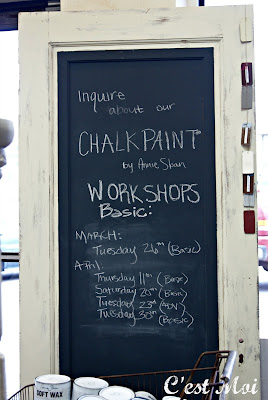 Inquire
about our
CHALK PAINT
by Annie Sloan
WORKSHOPS
Basic:
MARCH:
Tuesday 26th (Basic)
April:
Thursday 11th (Basic)
Saturday 20th (Basic)
Tuesday 23rd (ADV)
Tuesday 30th (Basic)
SOFT WAX
C'est Moi